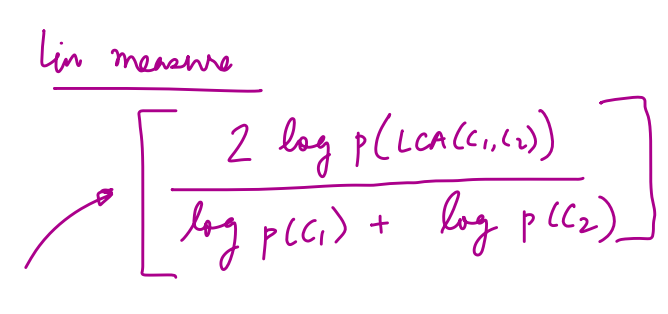 Lin measure
2 log p(LCA(C1,C2))
log p(C1) + log p(C2)